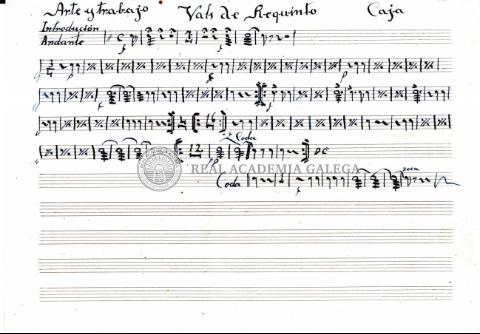 Arte y trabajo Vals de Requinto Caja
Introdución
Andante
Coda
DC
REAL ACADEMIA GALEGA
Coda